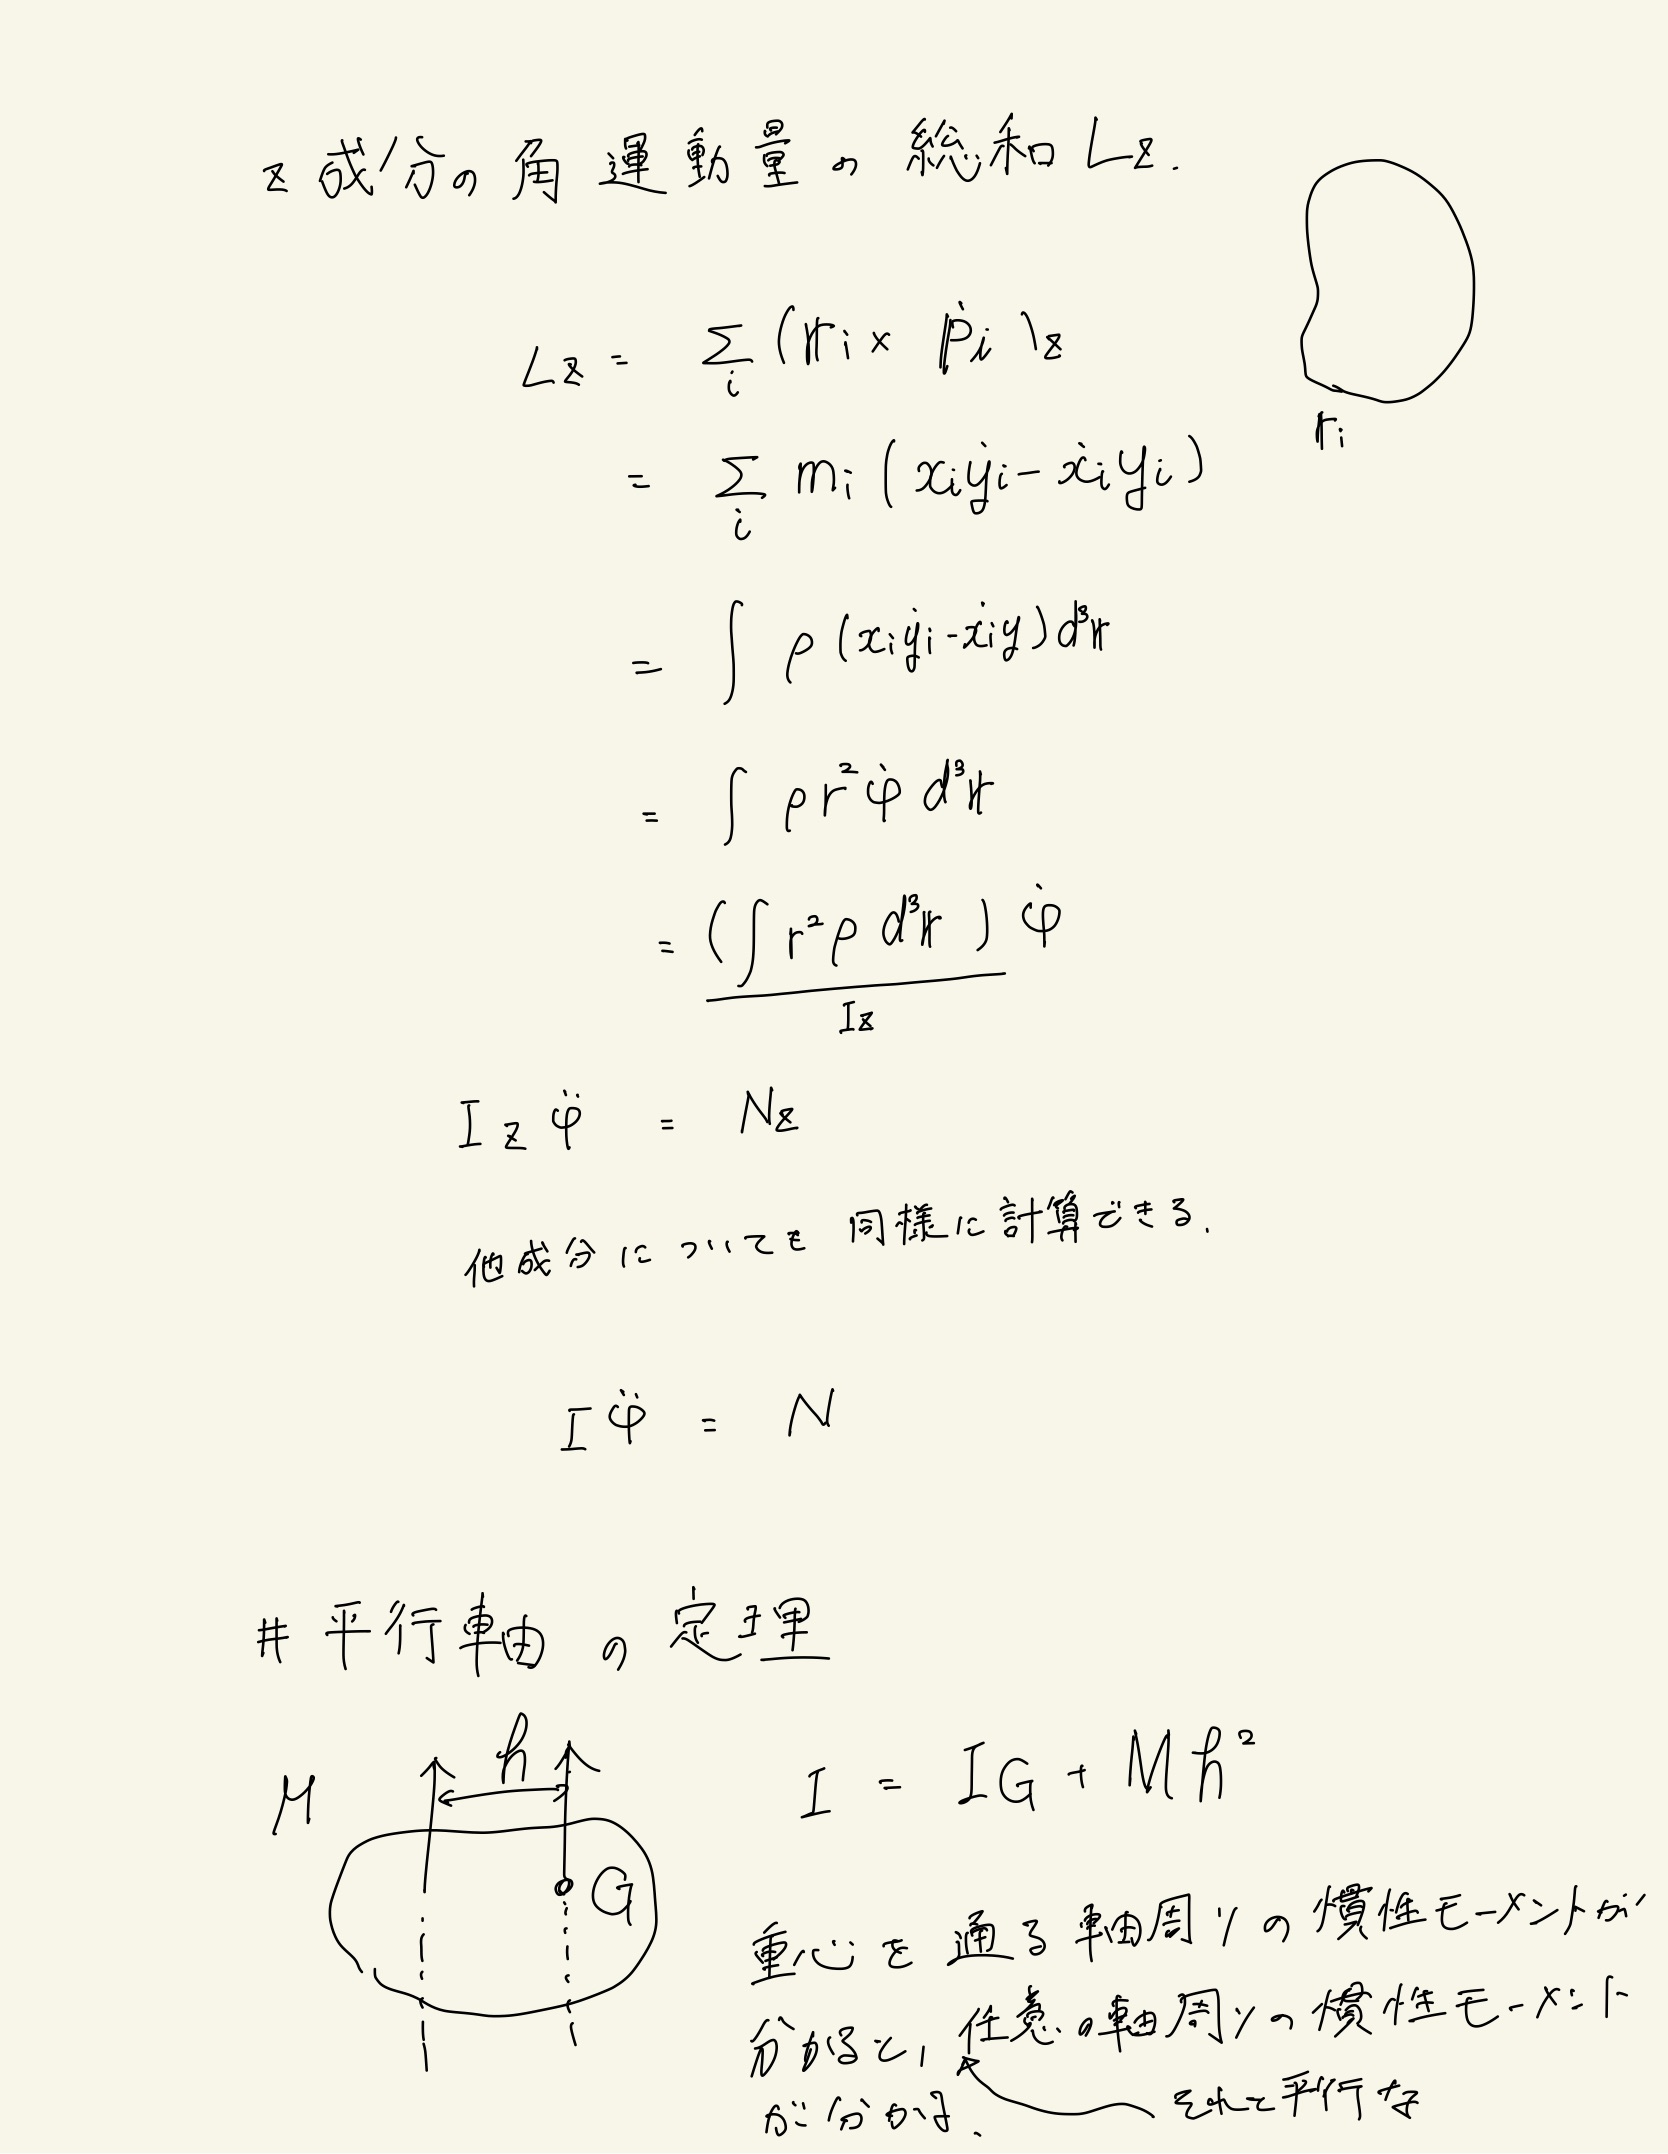 z成分の角運動量の総和Lz.
Lz = Σ_i (𝕣i × ṗi)z
𝕣i
= Σ_i mi (xiẏi - ẋiyi)
= ∫ ρ (xiẏi - ẋiy) d³𝕣
= ∫ ρ r² φ̇ d³𝕣
= (∫ r² ρ d³𝕣) φ̇
Iz
Iz φ̈ = Nz
他成分についても同様に計算できる.
I φ̈ = N
# 平行軸の定理
h
M
I = IG + Mh²
G
重心を通る軸周りの慣性モーメントが
分かると, 任意の軸周りの慣性モーメント
が分かる.
それと平行な